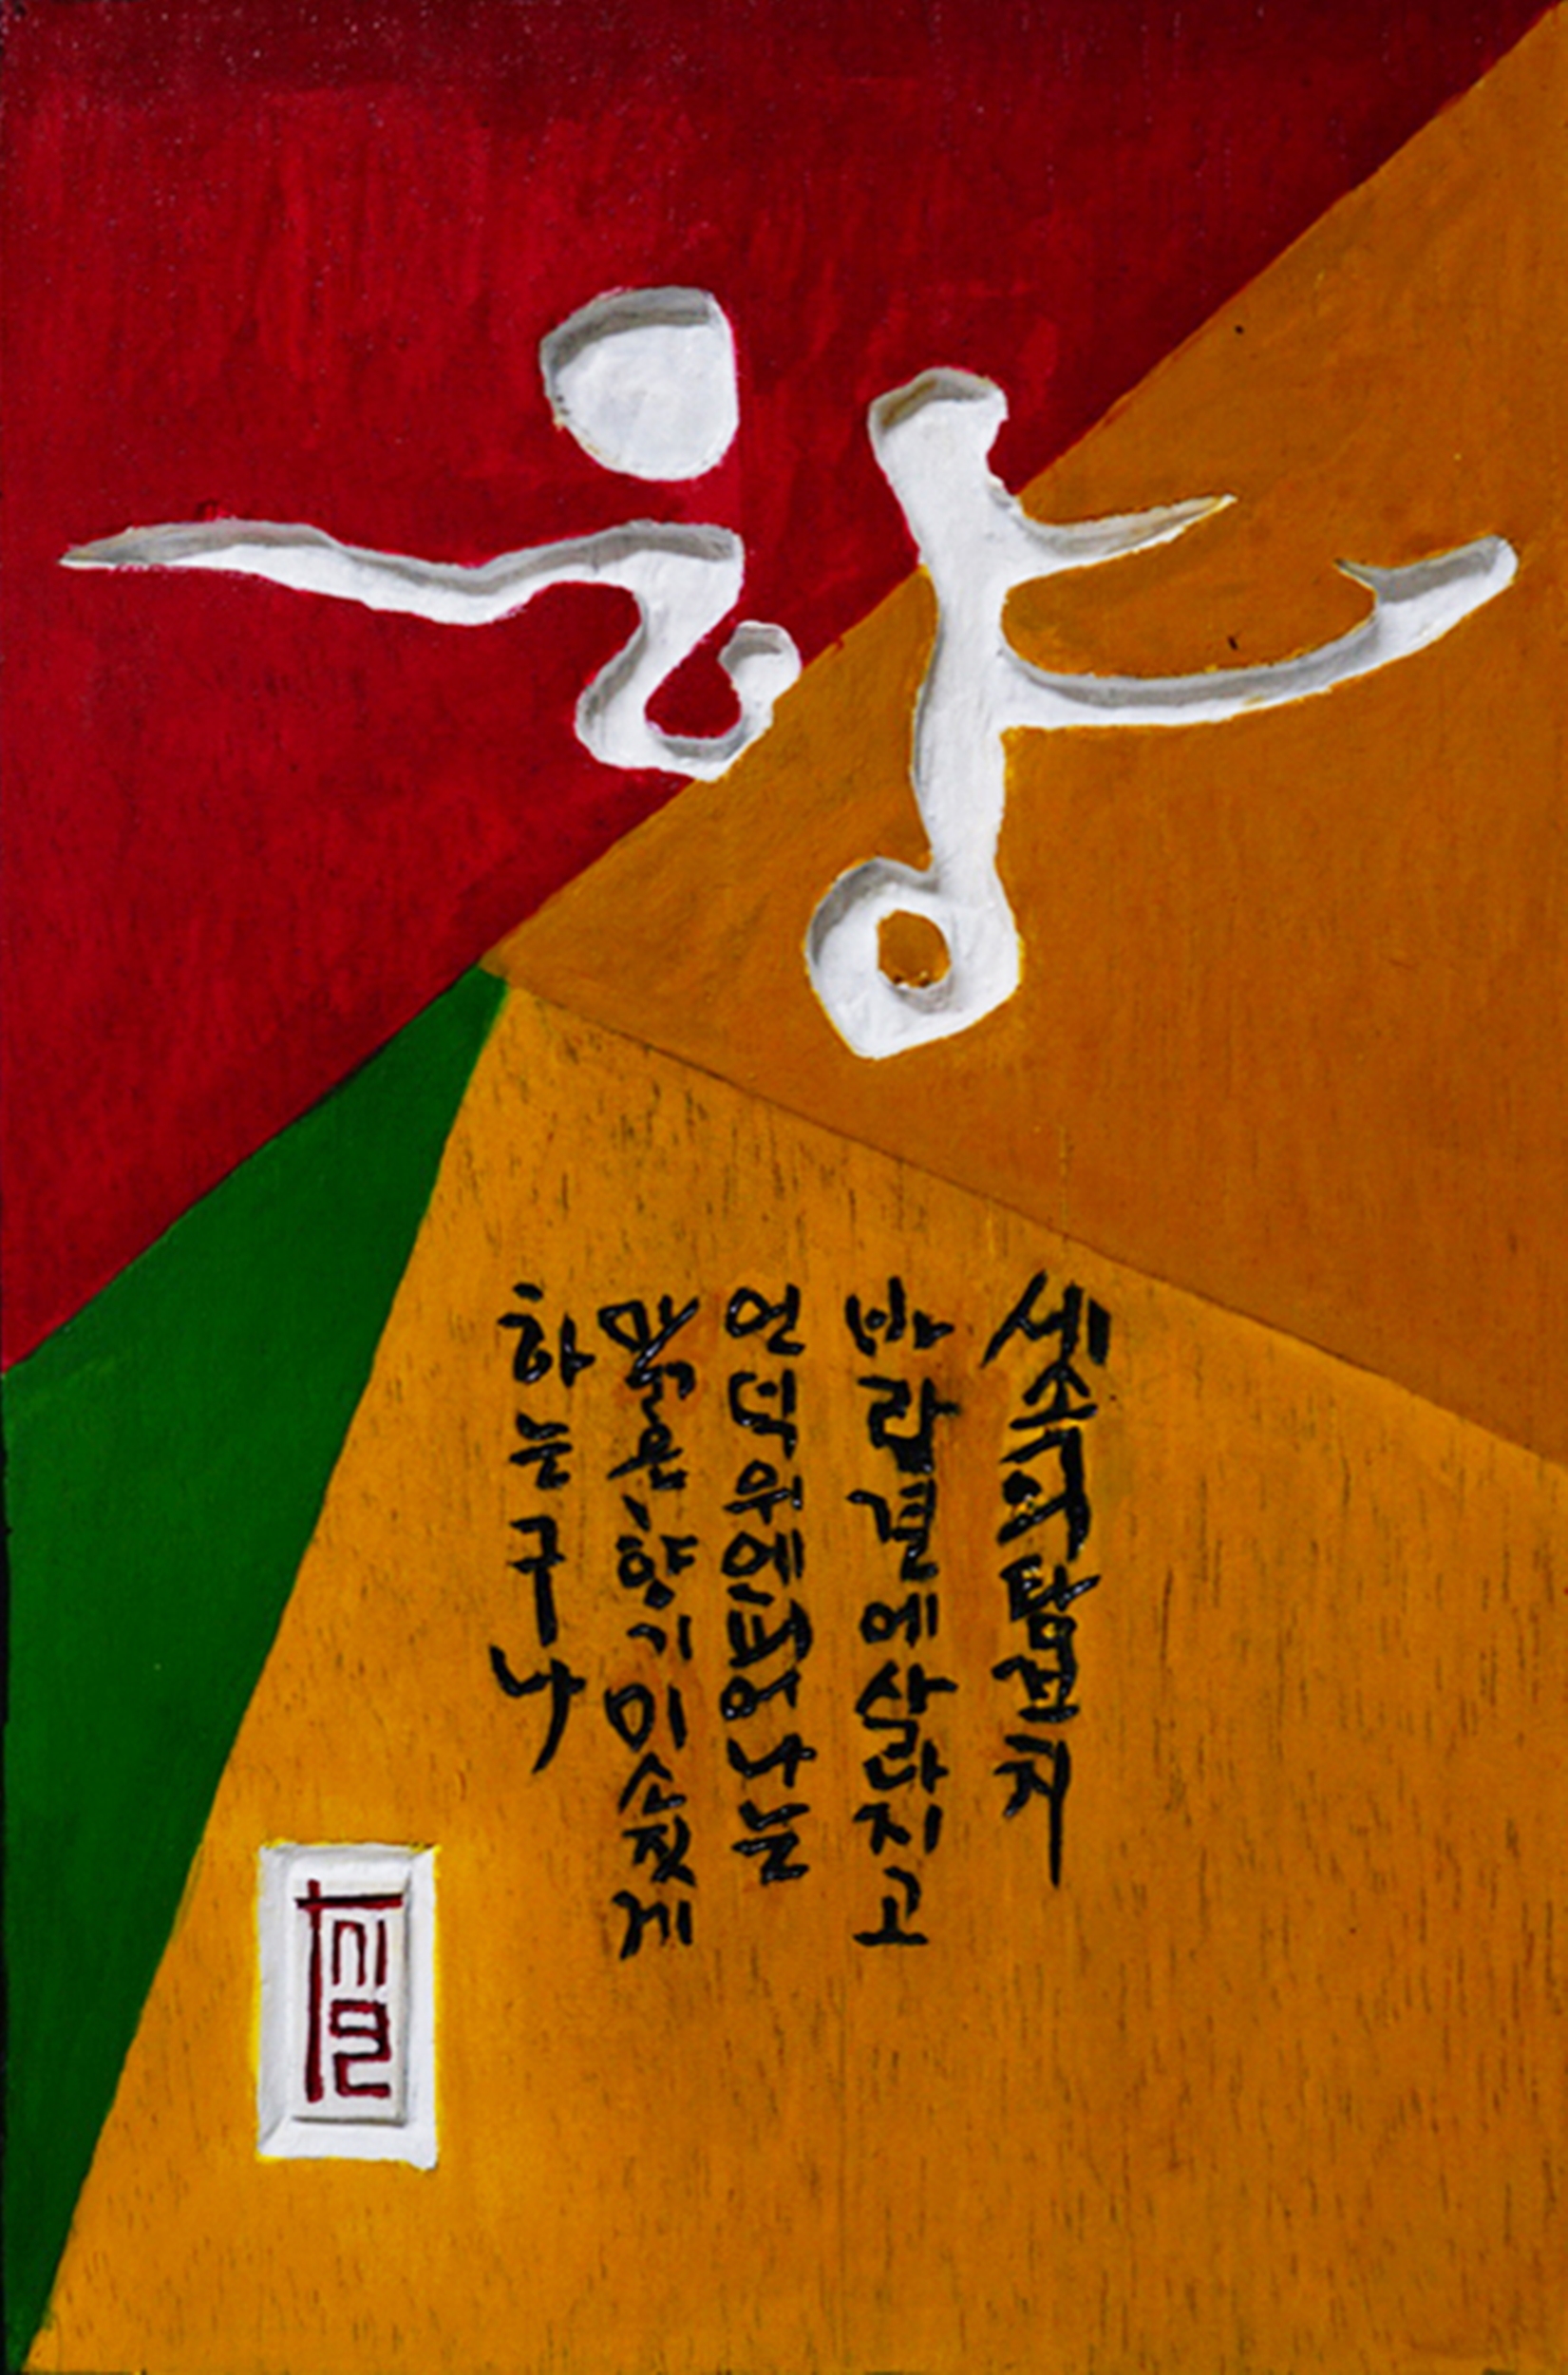 향
세속의탐진치
바람결에사라지고
언덕위에피어나는
맑은향기미소짓게
하는구나